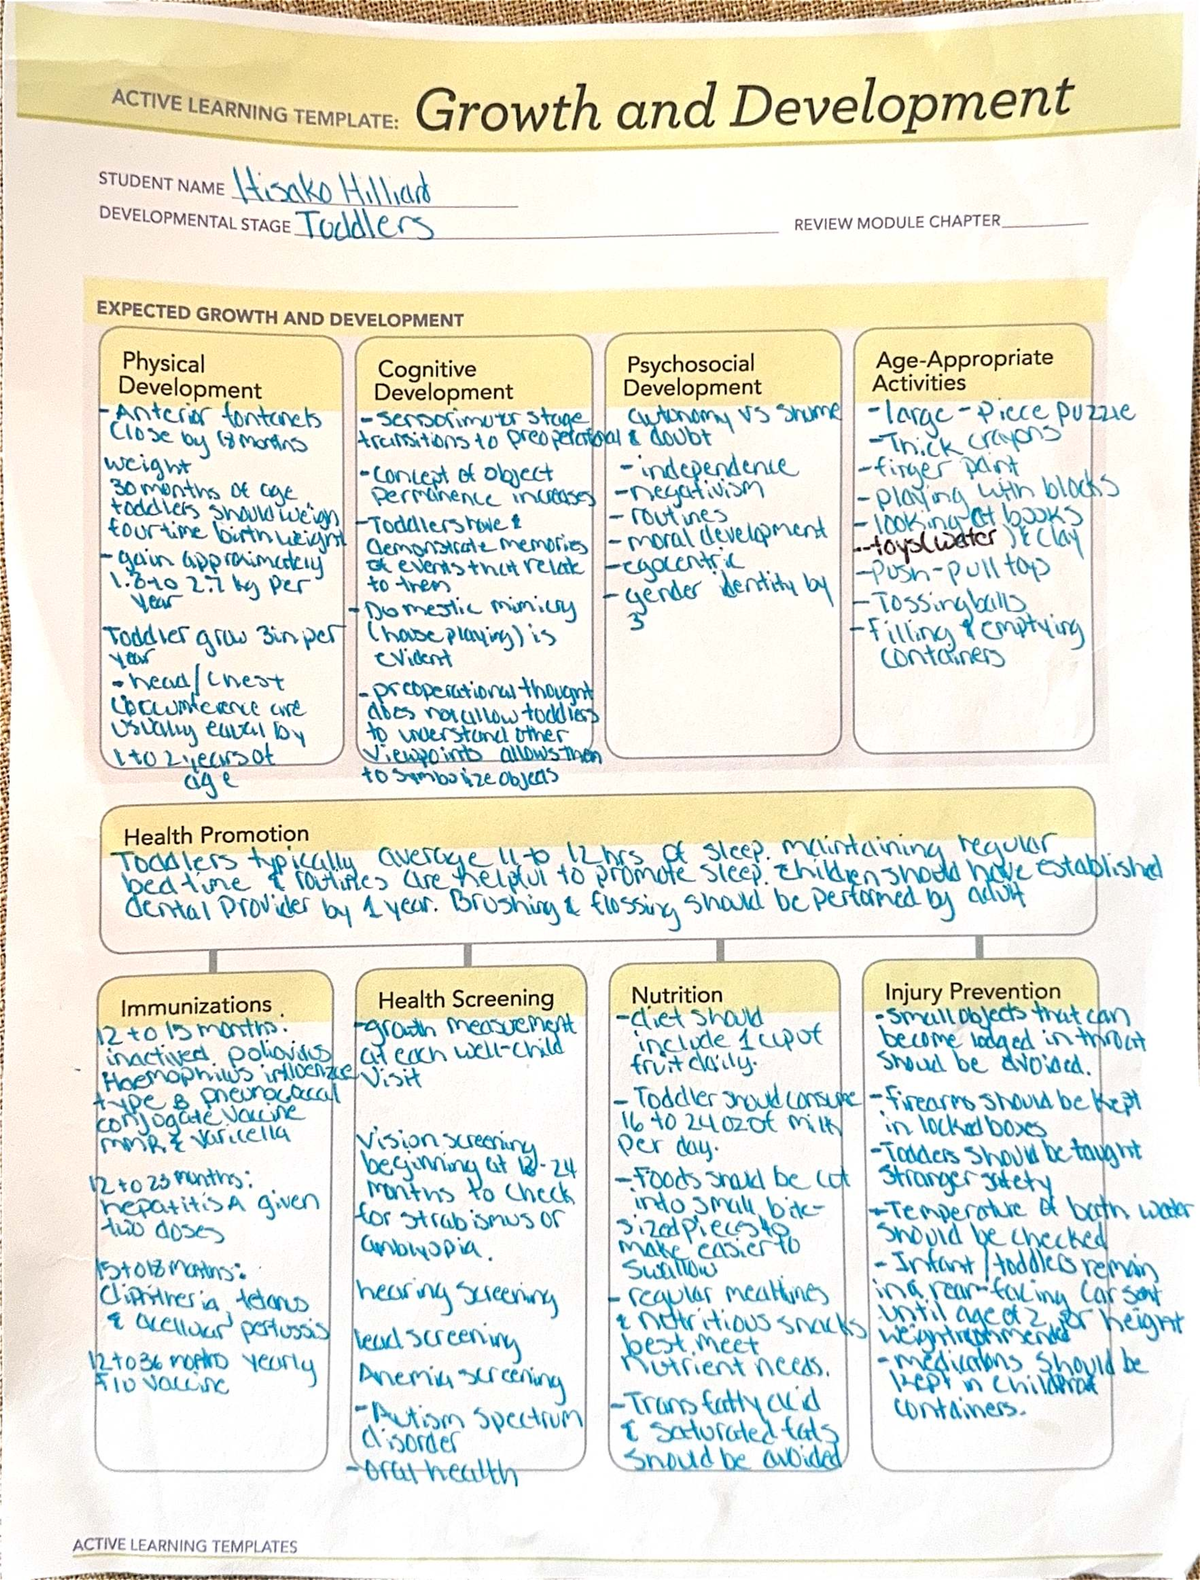 ACTIVE LEARNING TEMPLATE: Growth and Development
STUDENT NAME Hisako Hilliard
DEVELOPMENTAL STAGE Toddlers
REVIEW MODULE CHAPTER
EXPECTED GROWTH AND DEVELOPMENT
Physical
Development
- Anterior fontanels
close by 18 months
weight
30 months of age
toddlers should weigh
four time birth weight
- gain approximately
1.8 to 2.7 kg per
year
Toddler grow 3in per
year
- head/chest
circumference are
usually equal by
1 to 2 years of
age
Cognitive
Development
- sensorimotor stage
transitions to preoperational
- concept of object
permanence increases
- Toddlers have &
demonstrate memories
of events that relate
to them
- Domestic mimicry
(house playing) is
evident
- preoperational thought
does not allow toddlers
to understand other
viewpoints allows them
to symbolize objects
Psychosocial
Development
autonomy vs shame
& doubt
- independence
- negativism
- routines
- moral development
- egocentric
- gender identity by
3
Age-Appropriate
Activities
- large-piece puzzle
- Thick crayons
- finger paint
- playing with blocks
- looking at books
- toys (water) & clay
- push-pull toy
- Tossing balls
- filling & emptying
containers
Health Promotion
Toddlers typically average 11 to 12 hrs of sleep. maintaining regular
bedtime & routines are helpful to promote sleep. children should have established
dental provider by 1 year. Brushing & flossing should be performed by adult
Immunizations
12 to 15 months:
inactived poliovirus
Haemophilus influenzae
type B pneumococcal
conjogate vaccine
MMR & varicella
12 to 23 months:
hepatitis A given
two doses
15 to 18 months:
diphtheria, tetanus
& acellular pertussis
12 to 36 months yearly
vaccine
Health Screening
- growth measurement
at each well-child
visit
vision screening
beginning at -24
months to check
for strabismus or
amblyopia.
hearing screening
lead screening
Anemia screening
- Autism spectrum
disorder
- oral health
Nutrition
- diet should
include 1 cup of
fruit daily.
- Toddler should consume
16 to 24 oz of milk
per day.
- Foods should be cut
into small, bite-
sized pieces to
make easier to
swallow
- regular mealtimes
& nutritious snacks
best meet
nutrient needs.
- Trans fatty acid
& saturated fats
should be avoided
Injury Prevention
- small objects that can
become lodged in throat
should be avoided.
- firearms should be kept
in locked boxes
- Toddlers should be taught
stranger safety
- Temperature of bath water
should be checked
- Infant/toddlers remain
in a rear-facing car seat
until age of 2, or height
weight recommended
- medications should be
kept in childproof
containers.
ACTIVE LEARNING TEMPLATES